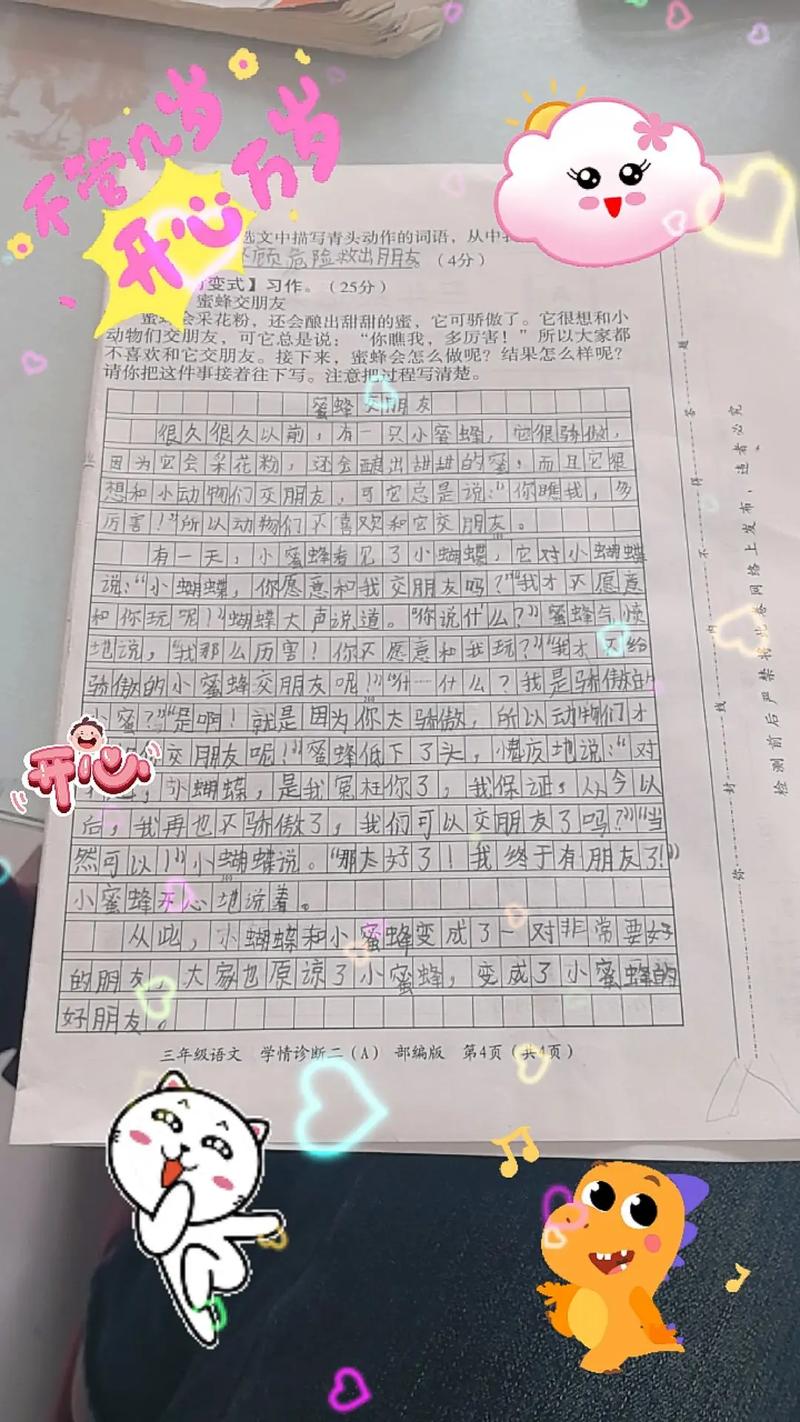 不管几岁
开心万岁
选文中描写青头动作的词语，从中
不顾危险救出朋友（4分）
变式】习作。（25分）
蜜蜂交朋友
蜜蜂会采花粉，还会酿出甜甜的蜜，它可骄傲了。它很想和小
动物们交朋友，可它总是说：“你瞧我，多厉害！”所以大家都
不喜欢和它交朋友。接下来，蜜蜂会怎么做呢？结果怎么样呢？
请你把这件事接着往下写。注意把过程写清楚。
蜜蜂交朋友
很久很久以前，有一只小蜜蜂，它很骄傲，
因为它会采花粉，还会酿出甜甜的蜜，而且它很
想和小动物们交朋友，可它总是说：“你瞧我，多
厉害！”所以动物们不喜欢和它交朋友。
有一天，小蜜蜂看见了小蝴蝶，它对小蝴蝶
说：“小蝴蝶，你愿意和我交朋友吗？”“我才不愿意
和你玩呢！”蝴蝶大声说道。“你说什么？”蜜蜂气愤
地说，“我那么厉害！你不愿意和我玩？”“我才不给
骄傲的小蜜蜂交朋友呢！”“什……什么？我是骄傲的
200
小蜜？”“是啊！就是因为你太骄傲，所以动物们才
交朋友呢！”蜜蜂低下了头，愧疚地说：“对
小蝴蝶，是我冤枉你了，我保证，从今以
后，我再也不骄傲了，我们可以交朋友了吗？”“当
然可以！”小蝴蝶说。“那太好了！我终于有朋友了！”
300
小蜜蜂开心地说着。
从此，小蝴蝶和小蜜蜂变成了一对非常要好
的朋友，大家也原谅了小蜜蜂，变成了小蜜蜂的
好朋友。
三年级语文 学情诊断二（A） 部编版 第4页（共4页）
开心
题
答
得
不
内
线
封
弥
检测前后严禁将此卷网络上发布，违者必究